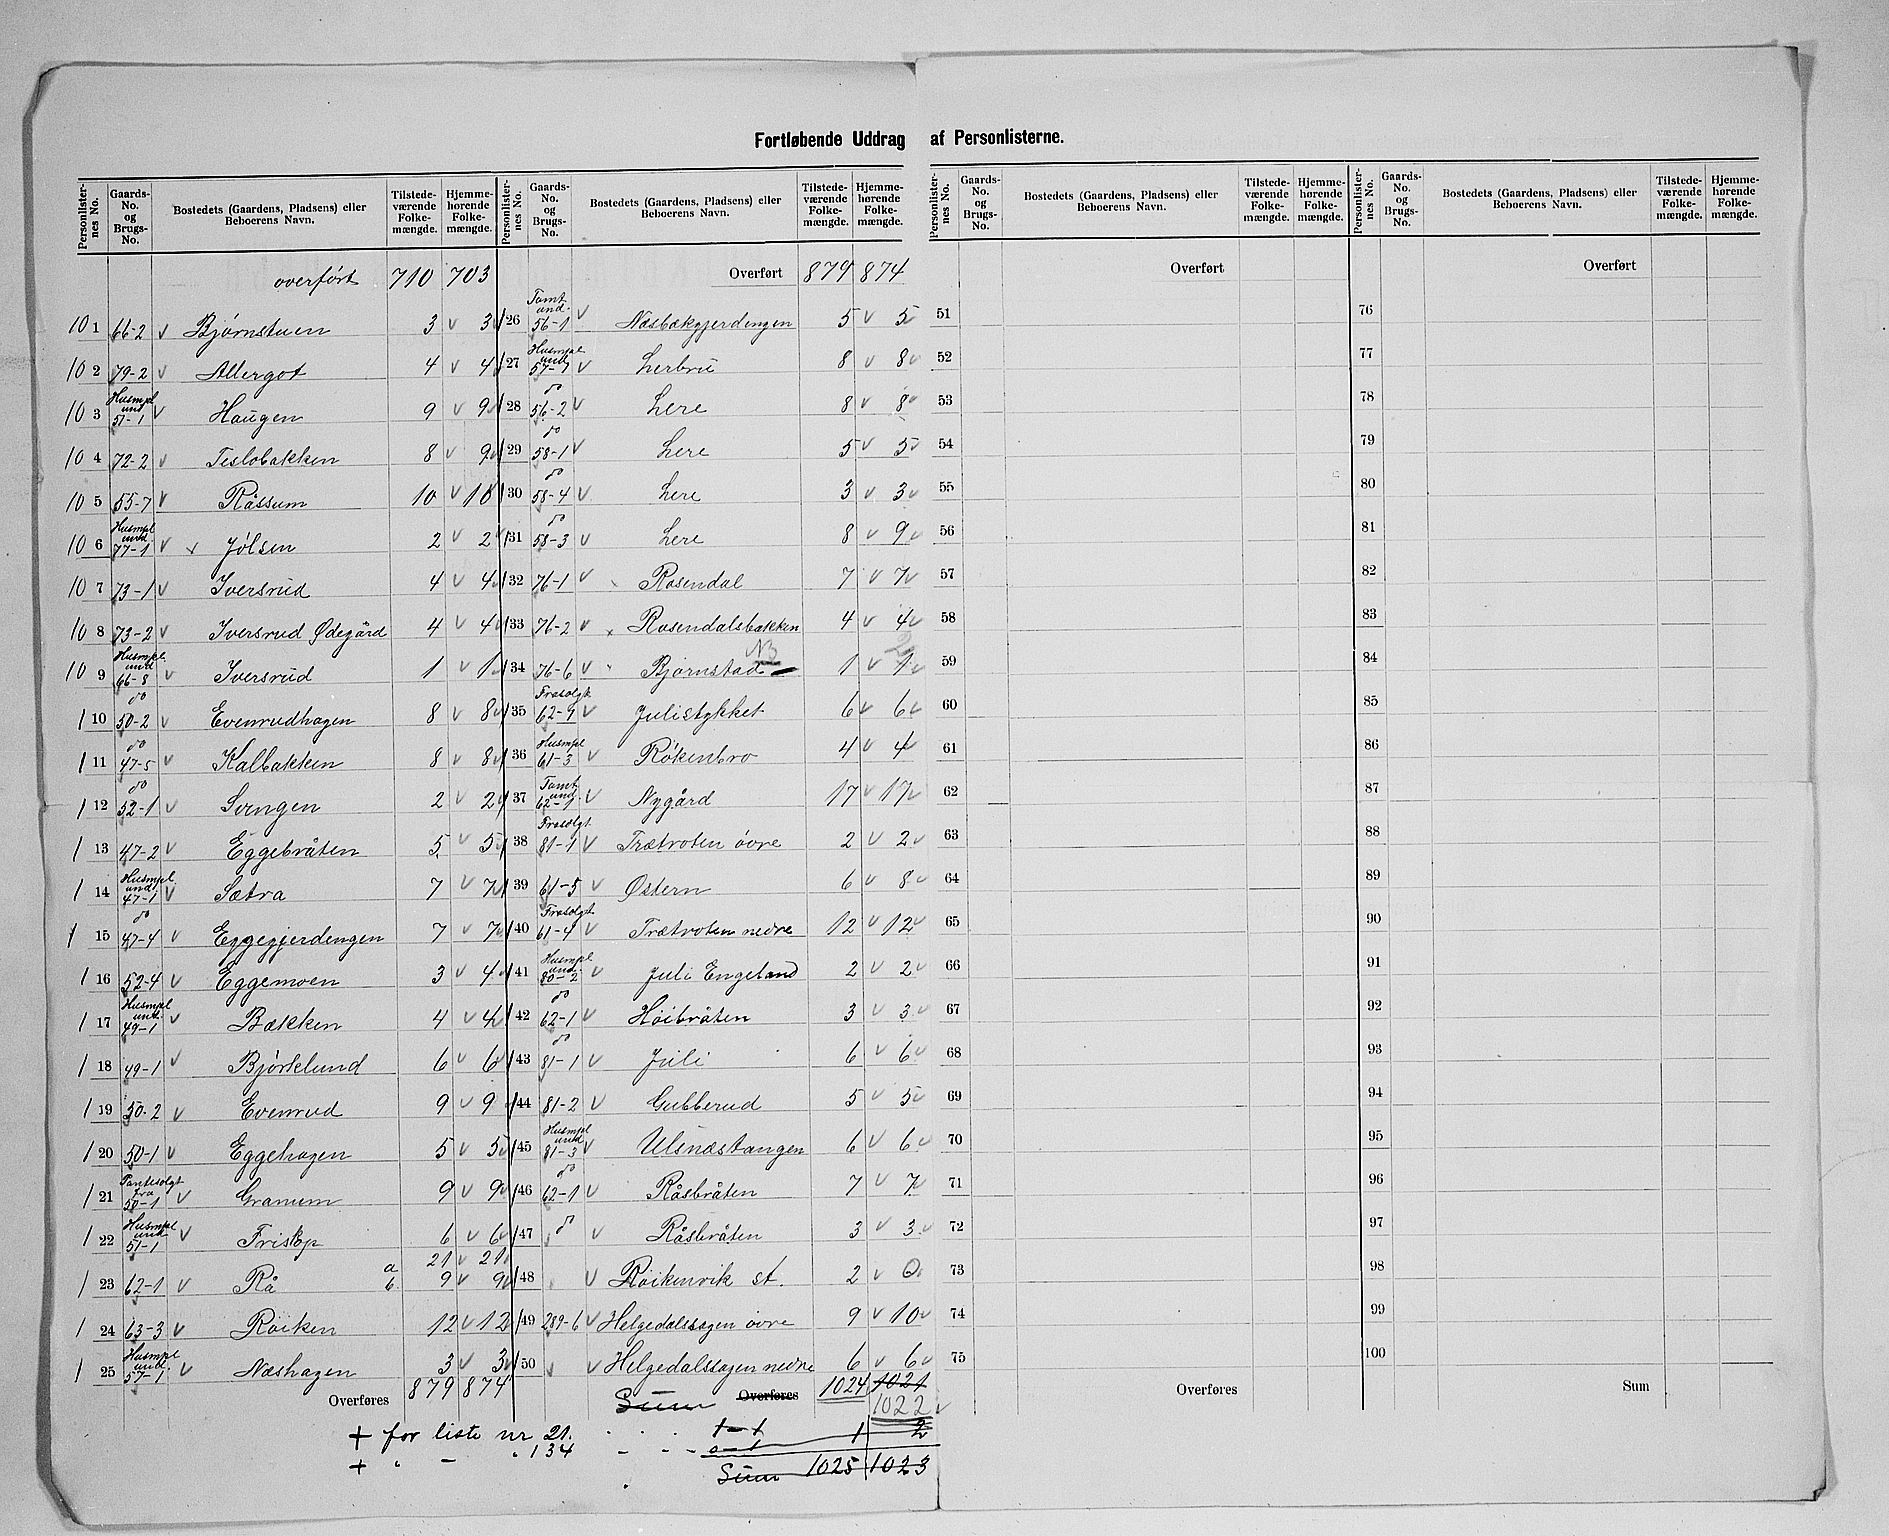 Fortløbende Uddrag af Personlisterne.
Personlisternes No. | Gaards-No. og Brugs-No. | Bostedets (Gaardens, Pladsens) eller Beboerens Navn. | Tilstedeværende Folkemængde. | Hjemmehørende Folkemængde.
overført 710 703
10 1 66-2 v Bjørnstuen 3 v 3
10 2 79-2 v Allergot 4 v 4
10 3 Husmpl. und. 51-1 v Haugen 9 v 9
10 4 72-2 v Teslobakken 8 v 9
10 5 55-7 v Råssum 10 v 10
10 6 Husmpl. und. 77-1 v x Jølsen 2 v 2
10 7 73-1 v Iversrud 4 v 4
10 8 73-2 v Iversrud Ødegård 4 v 4
10 9 Husmpl. und. 66-8 v Iversrud 1 v 1
1 10 do 50-2 v Evenrudhagen 8 v 8
1 11 do 47-5 v Kalbakken 8 v 8
1 12 do 52-1 v Svingen 2 v 2
1 13 47-2 v Eggebråten 5 v 5
1 14 Husmpl. und. 47-1 v Sætra 7 v 7
1 15 do 47-4 v Eggegjerdengen 7 v 7
1 16 52-4 v Eggemoen 3 v 4
1 17 Husmpl. und. 49-1 v Bækken 4 v 4
1 18 49-1 v Bjørklund 6 v 6
1 19 50-2 v Evenrud 9 v 9
1 20 50-1 v Eggehagen 5 v 5
1 21 Pantesolgt fra 50-1 v Granum 9 v 9
1 22 Husmpl. und. 51-1 v Friskop 6 v 6
1 23 62-1 v Rå a 21 v 21
b. 9 v 9
1 24 63-3 v Røiken 12 v 12
1 25 Husmpl. und. 57-1 v Næshagen 3 v 3
Overføres 879 874
Personlisternes No. | Gaards-No. og Brugs-No. | Bostedets (Gaardens, Pladsens) eller Beboerens Navn. | Tilstedeværende Folkemængde. | Hjemmehørende Folkemængde.
Overført 879 874
1 26 Tomt und. 56-1 v Næsbækgjerdengen 5 v 5
1 27 Husmpl. und. v Lerbru 8 v 8
1 28 do 56-2 v Lere 8 v 8
1 29 do 58-1 v Lere 5 v 5
1 30 do 58-4 v Lere 3 v 3
1 31 do 58-3 v Lere 8 v 9
1 32 76-1 v Rosendal 7 v 7
1 33 76-2 v x Rosendalsbakken 4 v 4
NB 2
1 34 76-6 v Bjørnstad 1 v 1
1 35 Frasolgt. v Julistykket 6 v 6
1 36 Husmpl. 61-3 v Røkenbro 4 v 4
1 37 Tomt und. v Nygård 17 v 17
1 38 Frasolgt. 81-1 v Trætroten øvre 2 v 2
1 39 61-5 v Østern 6 v 8
1 40 Frasolgt. 61-4 v Trætroten nedre 12 v 12
1 41 Husmpl. und. 80-2 v Juli Engeland 2 v 2
1 42 do 62-1 v Høibråten 3 v 3
1 43 do 81-1 v Juli 6 v 6
1 44 81-2 v Gubberud 5 v 5
1 45 Husmpl. und 81-3 v Ulsnæstangen 6 v 6
1 46 do 62-1 v Råsbråten 7 v 7
1 47 do v Råsbråten 3 v 3
1 48 v Røikenvik st. 2 v 0
1 49 289-6 v Helgedalssagen øvre 9 v 10
1 50 v Helgedalssagen nedre 6 v 6
Sum Overføres 1024 1021
1022
+ for liste nr 21. 1-1 1 2
+ " - " 134 - - - 0-1
Sum 1025 1023
Personlisternes No. | Gaards-No. og Brugs-No. | Bostedets (Gaardens, Pladsens) eller Beboerens Navn. | Tilstedeværende Folkemængde. | Hjemmehørende Folkemængde.
Overført
51
52
53
54
55
56
57
58
59
60
61
62
63
64
65
66
67
68
69
70
71
72
73
74
75
Overføres
Personlisternes No. | Gaards-No. og Brugs-No. | Bostedets (Gaardens, Pladsens) eller Beboerens Navn. | Tilstedeværende Folkemængde. | Hjemmehørende Folkemængde.
Overført
76
77
78
79
80
81
82
83
84
85
86
87
88
89
90
91
92
93
94
95
96
97
98
99
100
Sum